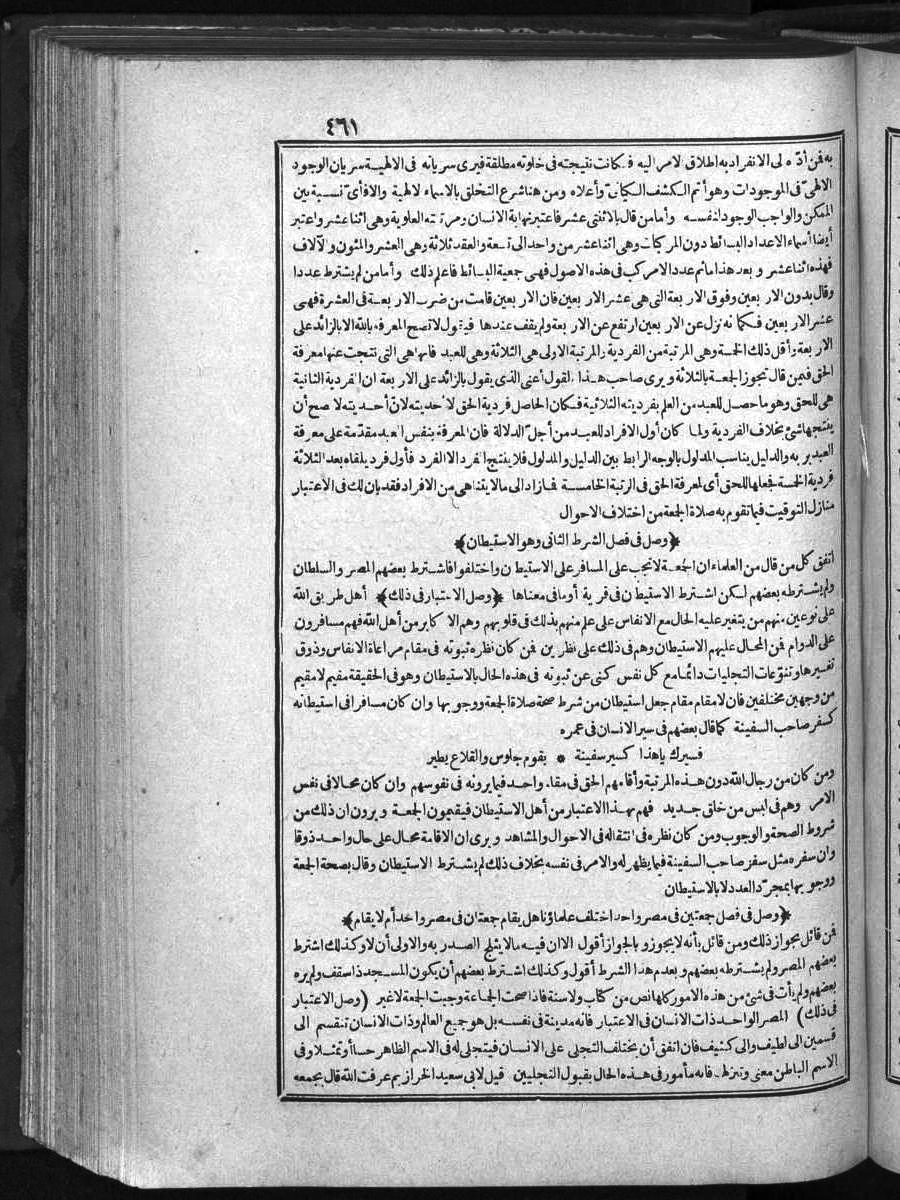 ٤٦١
به فمن أدّاه الى الانفراد به اطلاق الامر اليه فكانت نتيجته فى خلوته مطلقة فيرى سريانه فى الالهية سريان الوجود
الالهىّ فى الموجودات وهو أتم الكشف الكيانىّ وأعلاه ومن هنا شرع التخلق بالاسماء الالهية والا فأىّ نسبة بين
الممكن والواجب الوجود لنفسه وأما من قال باثنى عشر فاعتبر نهاية الانسان ومرتبته العلوية وهى اثنا عشر واعتبر
أيضا أسماء الاعداد البسائط دون المركبات وهى اثنا عشر من واحد الى تسعة والعقد ثلاثة وهى العشر والمئون والآلاف
فهذه اثنا عشر وبعد هذا ماثم عدد الا مركب فى هذه الاصول فهى جمعية البسائط فاعلم ذلك وأما من لم يشترط عددا
وقال بدون الاربعين وفوق الاربعة التى هى عشر الاربعين فان الاربعين قامت من ضرب الاربعة فى العشرة فهى
عشر الاربعين فكما نه نزل عن الاربعين ارتفع عن الاربعة ولم يقف عندها فيقول لا تصح المعرفة بالله الا بالزائد على
الاربعة وأقل ذلك الخمسة وهى المرتبة من الفردية والمرتبة الاولى هى الثلاثة وهى للعبد فانها هى التى نتجت عنها معرفة
الحق فمن قال تجوز الجمعة بالثلاثة ويرى صاحب هذا القول أعنى الذى يقول بالزائد على الاربعة ان الفردية الثانية
هى للحق وهو ما حصل للعبد من العلم بفرديته الثلاثية فكان الحاصل فردية الحق لا أحديته لانّ أحديته لا صح أن
ينتجها شئ بخلاف الفردية ولما كان أول الافراد للعبد من أجل الدلالة فان المعرفة بنفس العبد مقدّمة على معرفة
العبد بربه والدليل يناسب المدلول بالوجه الرابط بين الدليل والمدلول فلا ينتج الفرد الا الفرد فأول فرد يلقاه بعد الثلاثة
فردية الخمسة فجعلها للحق أى لمعرفة الحق فى الرتبة الخامسة فما زاد الى ما لا يتناهى من الافراد فقد بان لك فى الاعتبار
منازل التوقيت فيما تقوم به صلاة الجمعة من اختلاف الاحوال
﴿وصل فى فصل الشرط الثانى وهو الاستيطان﴾
اتفق كل من قال من العلماء ان الجمعة لا تجب على المسافر على الاستيطان واختلفوا فاشترط بعضهم المصر والسلطان
ولم يشترطه بعضهم لكن اشترط الاستيطان فى قرية أو ما فى معناها ﴿وصل الاعتبار فى ذلك﴾ أهل طريق الله
على نوعين منهم من يتغير عليه الحال مع الانفاس على علم منهم بذلك فى قلوبهم وهم الاكابر من أهل الله فهم مسافرون
على الدوام فمن المحال عليهم الاستيطان وهم فى ذلك على نظرين فمن كان نظره ثبوته فى مقام مراعاة الانفاس وذوق
تغييرها وتنوّعات التجليات دائما مع كل نفس كنى عن ثبوته فى هذه الحال بالاستيطان وهو فى الحقيقة مقيم لا مقيم
من وجهين مختلفين فان لامقام مقام جعل استيطان من شرط صحة صلاة الجمعة ووجوبها وان كان مسافرا فى استيطانه
كسفر صاحب السفينة كما قال بعضهم فى سير الانسان فى عمره
فسيرك ياهذا كسير سفينة * بقوم جلوس والقلاع يطير
ومن كان من رجال الله دون هذه المرتبة وأقامهم الحق فى مقام واحد فيما يرونه فى نفوسهم وان كان محالا فى نفس
الامر وهم فى لبس من خلق جديد فهم بهذا الاعتبار من أهل الاستيطان فيقيمون الجمعة ويرون ان ذلك من
شروط الصحة والوجوب ومن كان نظره فى انتقاله فى الاحوال والمشاهد ويرى ان الاقامة محال على حال واحد ذوقا
وان سفره مثل سفر صاحب السفينة فيما يظهر له والامر فى نفسه بخلاف ذلك لم يشترط الاستيطان وقال بصحة الجمعة
ووجوبها بمجرّد العدد لا بالاستيطان
﴿وصل فى فصل جمعتين فى مصر واحد اختلف علماؤنا هل يقام جمعتان فى مصر واحد أم لا يقام﴾
فمن قائل بجواز ذلك ومن قائل بأنه لا يجوز وبالجواز أقول الا ان فيه ما لا يثلج الصدر به والاولى أن لا وكذلك اشترط
بعضهم المصر ولم يشترطه بعضهم وبعدم هذا الشرط أقول وكذلك اشترط بعضهم أن يكون المسجد ذا سقف ولم يره
بعضهم ولم يأت فى شئ من هذه الامور كلها نص من كتاب ولا سنة فاذا صحت الجماعة وجبت الجمعة لا غير (وصل الاعتبار
فى ذلك) المصر الواحد ذات الانسان فى الاعتبار فانه مدينة فى نفسه بل هو جميع العالم وذات الانسان تنقسم الى
قسمين الى لطيف والى كثيف فان اتفق أن يختلف التجلى على الانسان فيتجلى له فى الاسم الظاهر حسا وتمثلا وفى
الاسم الباطن معنى وتنزيها فانه مأمور فى هذه الحال بقبول التجليين قيل لابى سعيد الخراز بم عرفت الله قال بجمعه